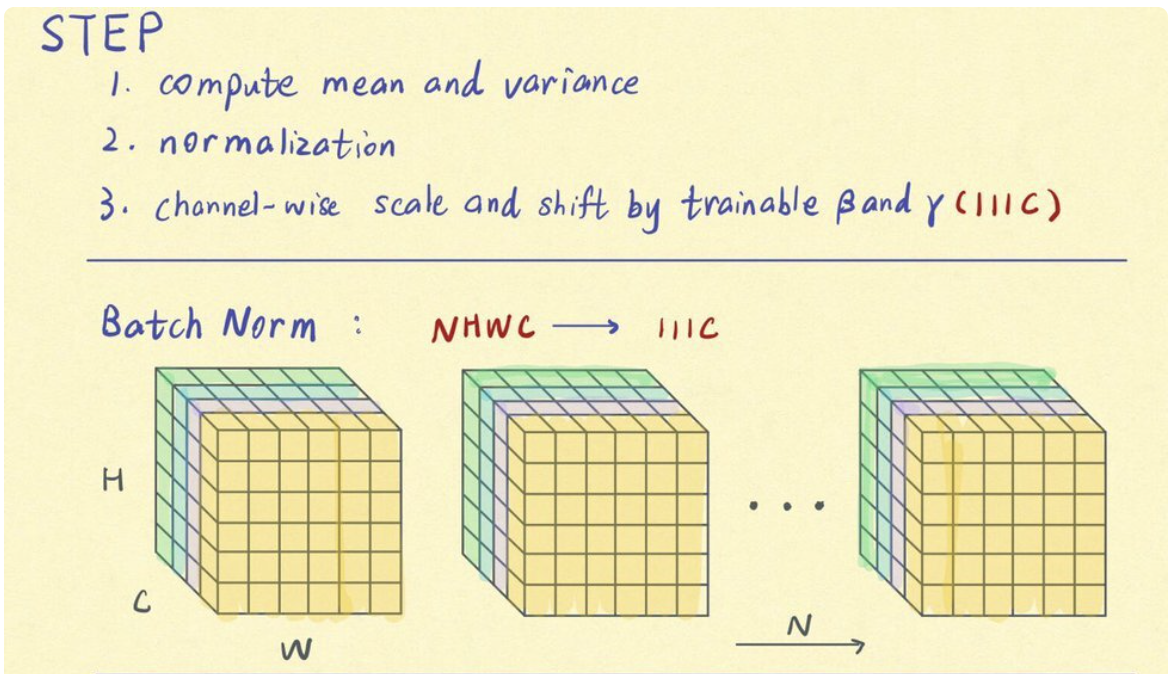 STEP
1. compute mean and variance
2. normalization
3. channel-wise scale and shift by trainable β and γ (111C)
Batch Norm : NHWC → 111C
H
C
W
...
N